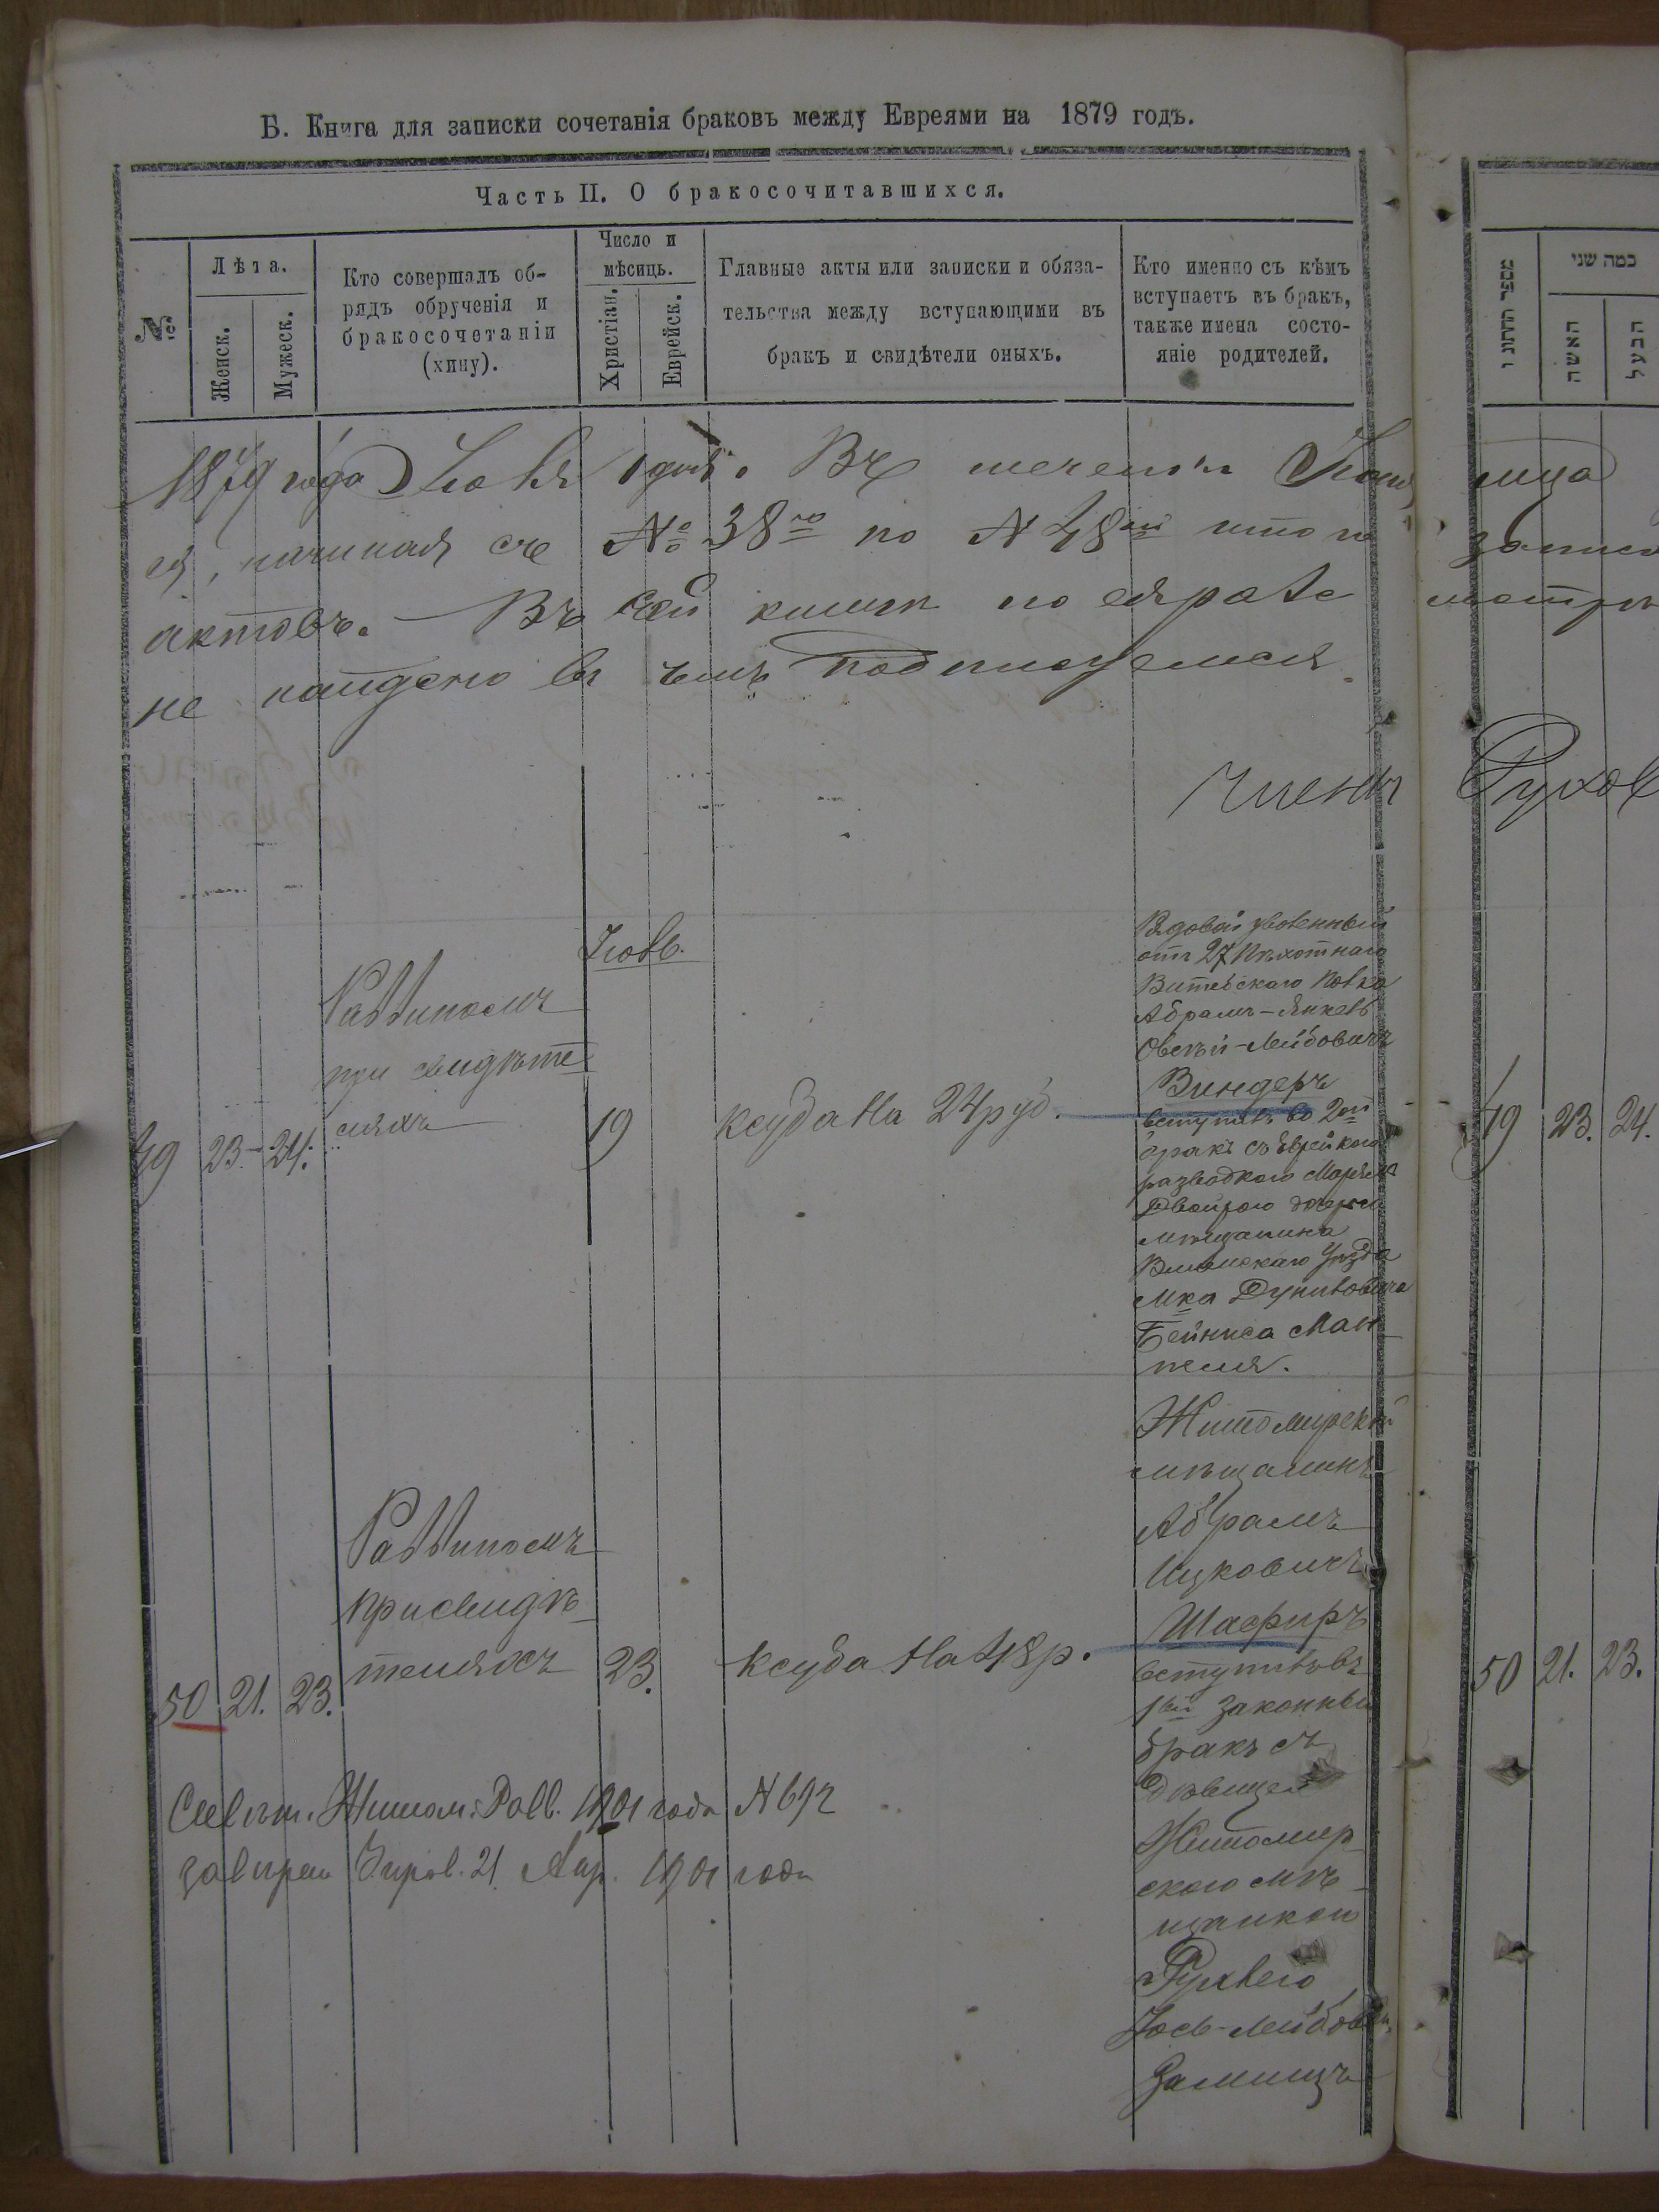 Б. Книга для записки сочетанія браковъ между Евреями на 1879 годъ.
Часть II. О бракосочитавшихся.
№
Лѣта.
Женск.
Мужеск.
Кто совершалъ об-
рядъ обрученія и
бракосочетаніи
(хину).
Число и
мѣсяцъ.
Христіан.
Еврейск.
Главные акты или записки и обяза-
тельства между вступающими въ
бракъ и свидѣтели оныхъ.
Кто именно съ кѣмъ
вступаетъ въ бракъ,
также имена состо-
яніе родителей.
1879 года Іюля 1 дня. Въ течении Іюня
начиная съ № 38го по № 48ой
актовъ. — Въ сей книги по
не найдено въ чемъ подписуемся
Членъ
Іюль.
49 23 - 24.
Раввиномъ
при свидѣте-
ляхъ
19
ксуба на 24 руб.
Рядовой уволенный
отъ 27 Пѣхотнаго
Витебскаго Полка
Абрамъ-Янкель
Овсѣй-Лейбовичъ
Виндеръ
вступилъ во 2ой
бракъ съ Еврейкою
разводкою
Двойрою дочерью
мѣщанина
Виленскаго Уѣзда
м-ка
Бейниса Ман-
теля.
50 21. 23.
Раввиномъ
при свидѣ-
теляхъ
23.
ксуба на 48 р.
Житомирскій
мѣщанинъ
Абрамъ
Ицковичъ
Шафиръ
вступилъ въ
1вый законный
бракъ съ
дѣвицей
Житомир-
скою мѣ-
щанкой
Рухлею
Іось-Лейбов.
Замищъ
Житом. Равв. 1901 года № 692
21 Апр. 1901 года
מספר החתוני׳
כמה שני
האשה
הבעל
мца
49 23. 24.
50 21. 23.